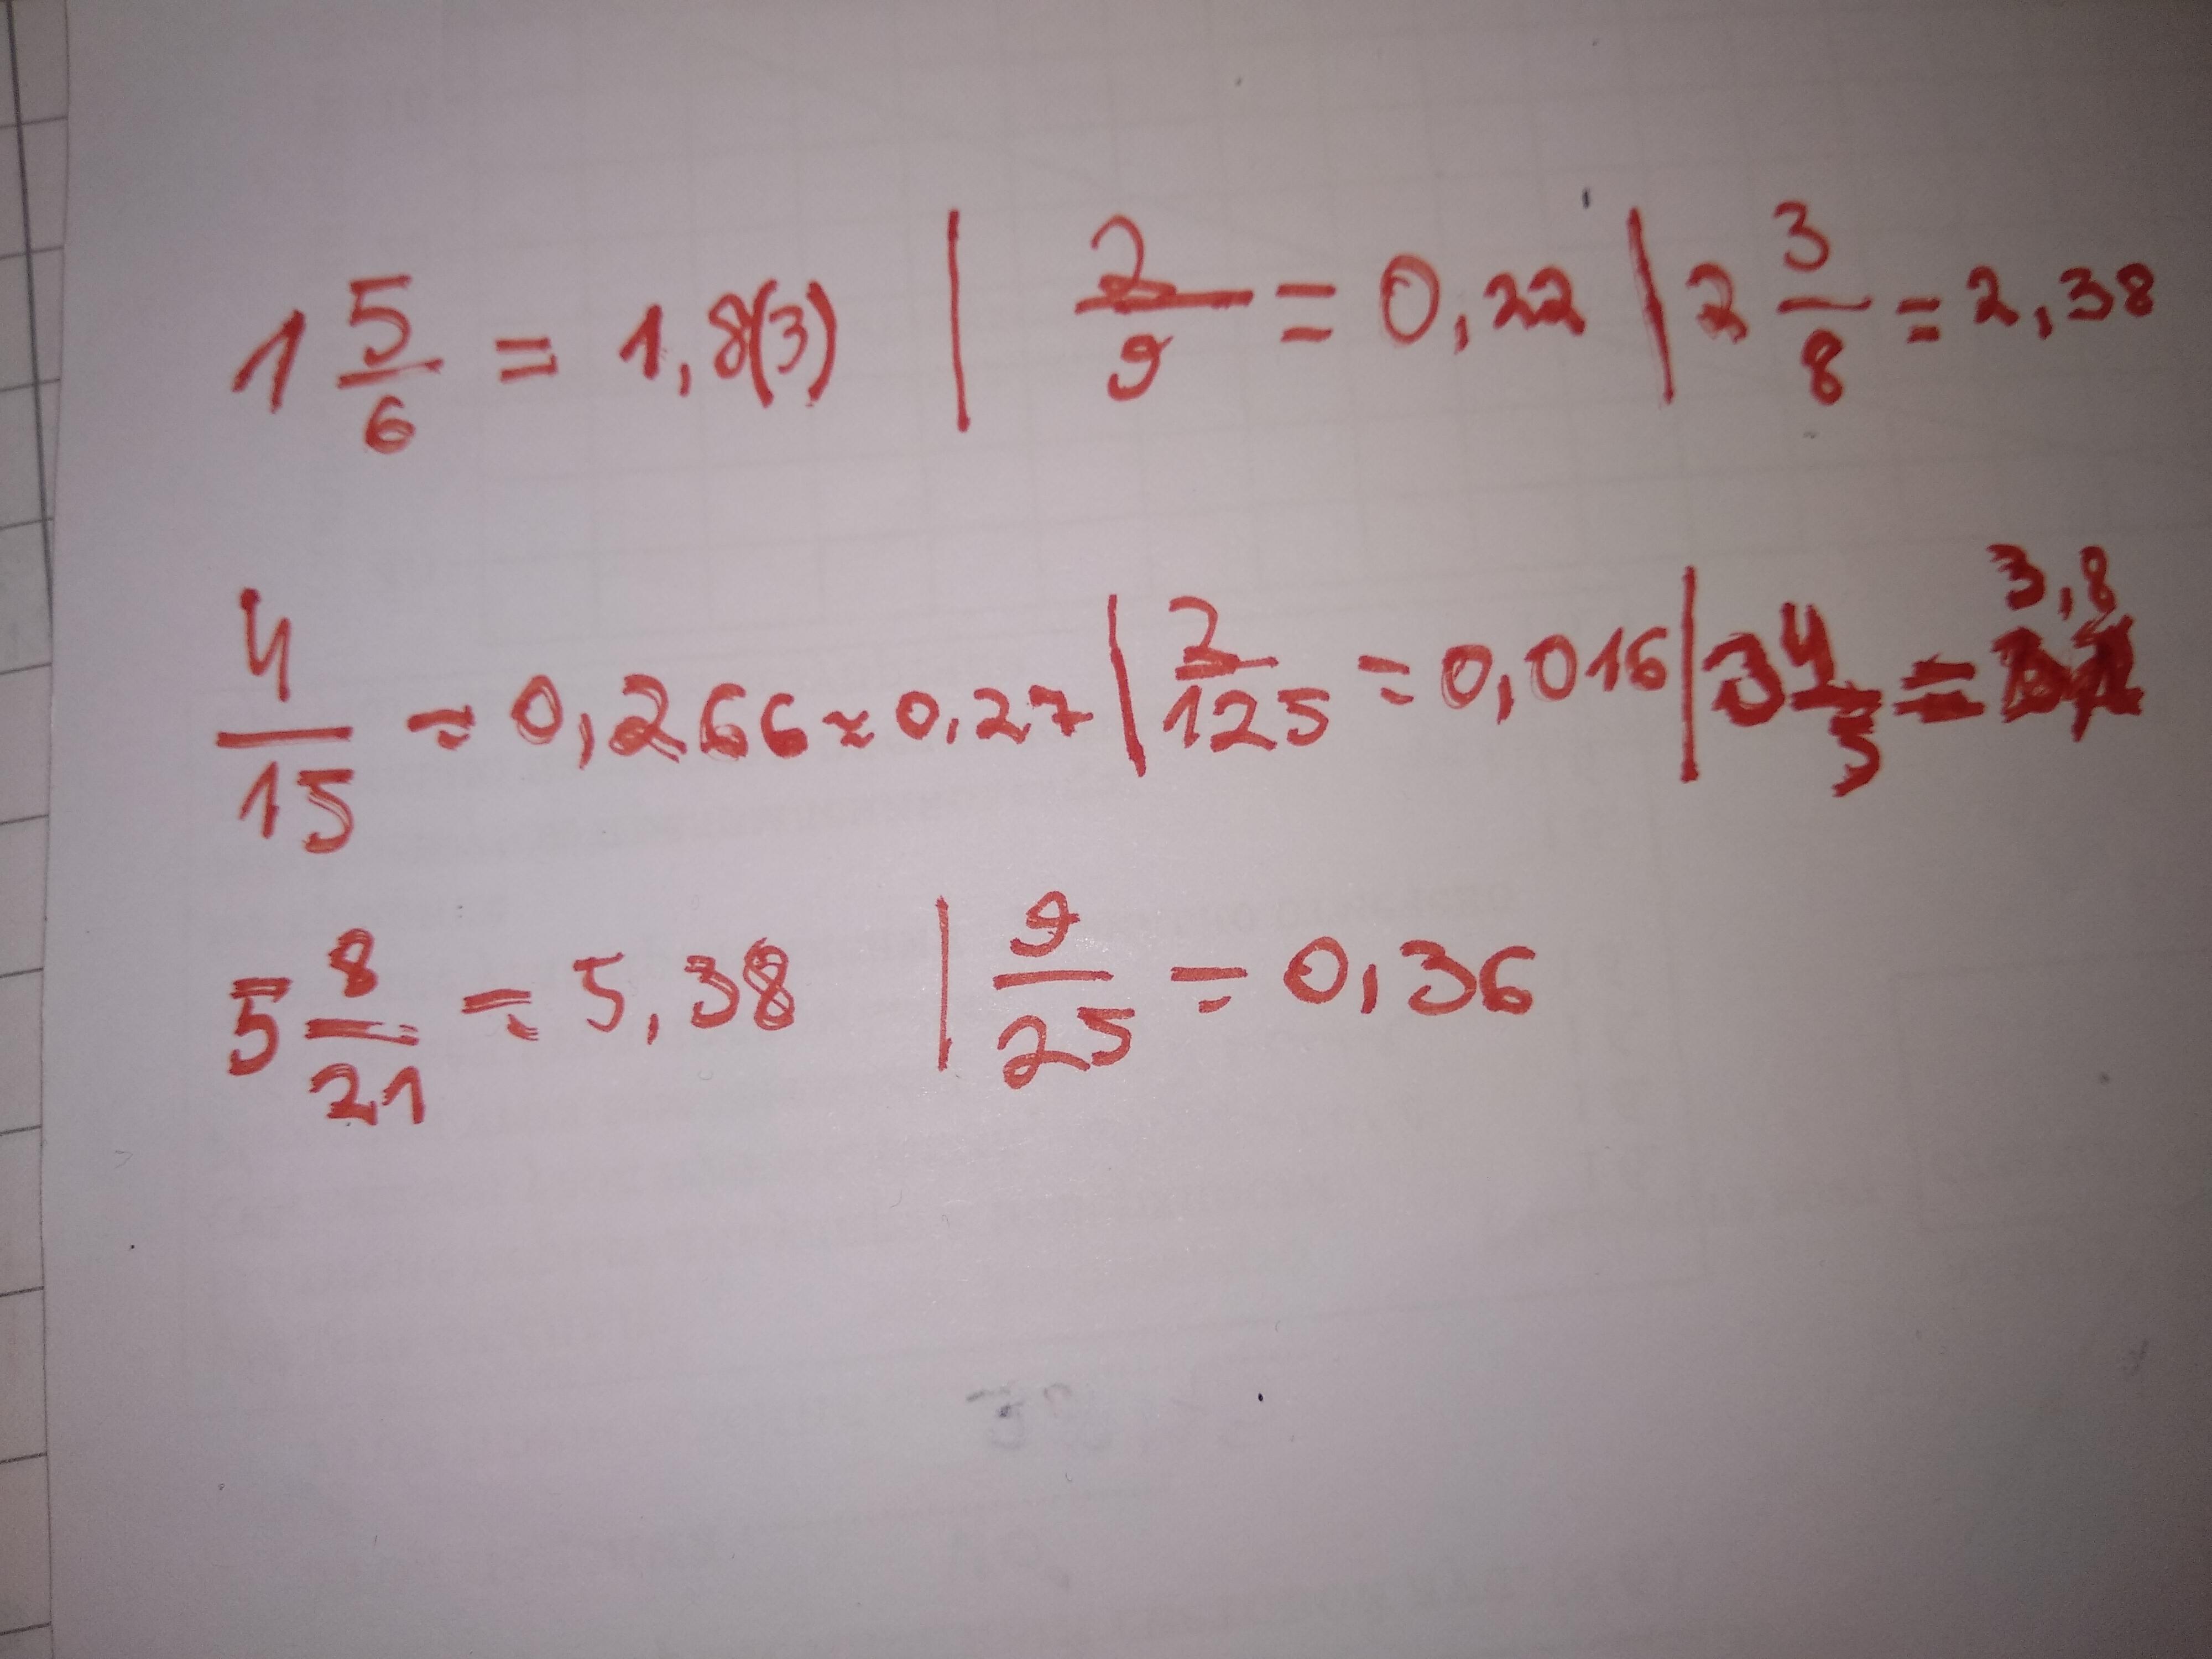 1 5/6 = 1,8(3) | 2/9 = 0,22 | 2 3/8 = 2,38
4/15 = 0,266 ≈ 0,27 | 2/125 = 0,016 | 3 4/5 = 3,8
5 8/21 = 5,38 | 9/25 = 0,36